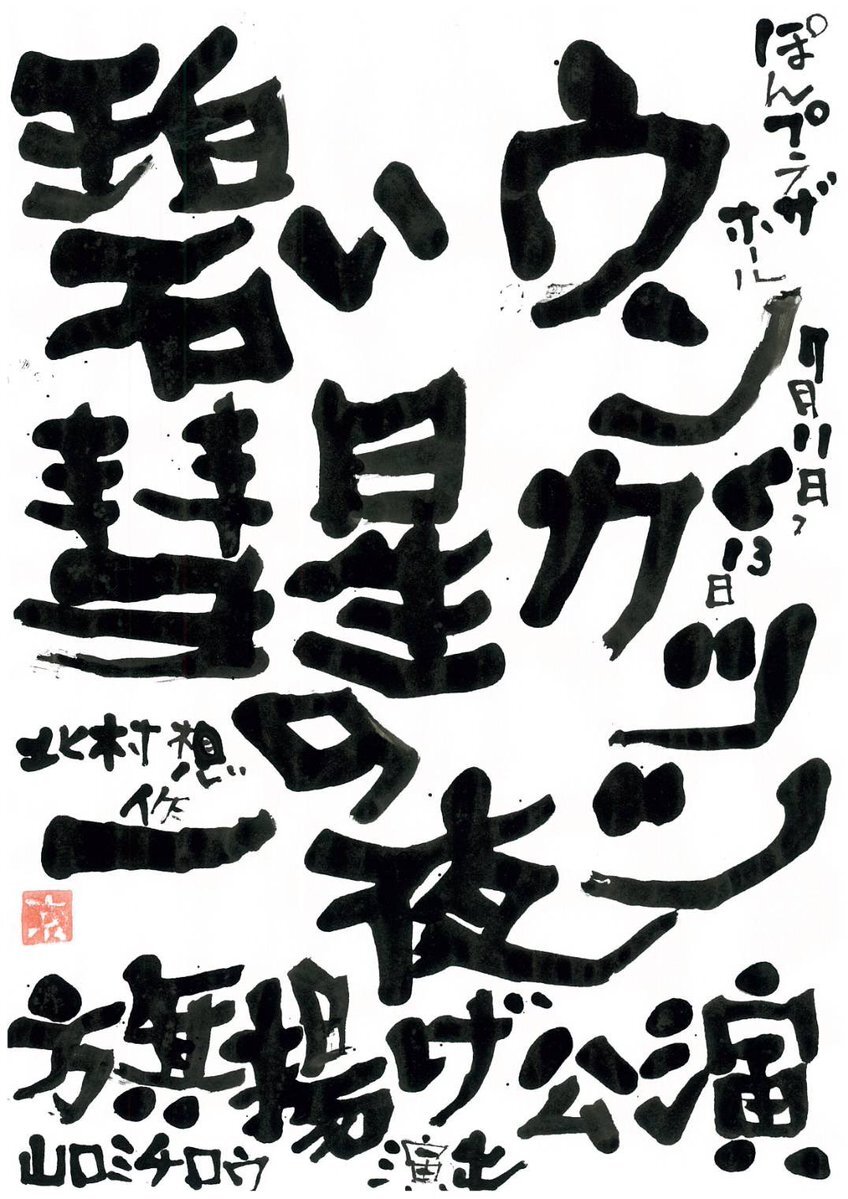 ぽんプラザ
ホール
7月11日
13日
ウンカツシン
碧い
彗星の
一夜
北村想
作
旗揚げ公演
山口ミチロウ 演出